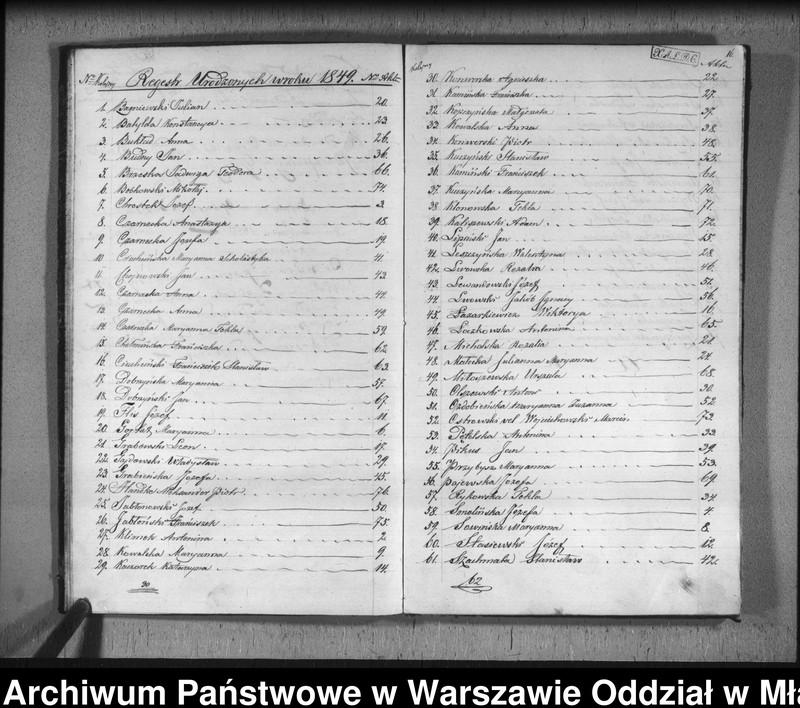 Nr Kolejny Regestr Urodzonych w roku 1849. Nr Aktu
1. Bagniewski Julian 20.
2. Batylda Konstancya 23.
3. Anna 26.
4. Budny Jan 36.
5. Jadwiga Teodora 66.
6. Boskowski Mikołaj 74.
7. Józef 3.
8. Czarnecka Anastazya 18.
9. Czarnecka Józefa 19.
10. Ciechońska Maryanna Scholastyka 41
11. Jan 43.
12. Czarnecka Anna 44.
13. Czarnecka Anna 49.
14. Czarnecka Maryanna Tekla 59.
15. Franciszka 62
16. Franciszek Stanisław 63.
17. Dobrzyńska Maryanna 57.
18. Dobrzyński Jan 67.
19. Flis Józef 11.
20. Maryanna 6.
21. Grabowski Leon 17.
22. Gajdowski Władysław 29.
23. Grabińska Józefa 45.
24. Alexander Piotr 76.
25. Jabłonowski Józef 50.
26. Jabłoński Franciszek 75.
27. Klimek Antonina 2.
28. Kowalska Maryanna 9.
29. Katarzyna 14.
30
Kolejny X.A.L.F.C. 16
Aktu
30. Agnieszka 22.
31. Kamińska Franciszka 27.
32. Kopczyńska Małgorzata 37.
33. Kowalska Anna 38.
34. Piotr 48.
35. Kuczyński Stanisław 54.
36. Kamiński Franciszek 61.
37. Kuczyńska Maryanna 70.
38. Kłonowska Tekla 71.
39. Kaliszewski Adam 72.
40. Lipiński Jan 25.
41. Leszczyńska Walentyna 28.
42. Lwowska Rozalia 46.
43. Lewandowski Józef 51.
44. Lwowski Jakób Ignacy 56.
45. Łazarkiewicz Wiktorya 16.
46. Łozkowska Antonina 65.
47. Michalska Rozalia 21.
48. Małecka Julianna Maryanna 24.
49. Miłoszewska Urszula 68.
50. Olszewski Antoni 30.
51. Ozdobińska Maryanna Zuzanna 52.
52. Ostrowski vel Wojciechowski Marcin 73.
53. Antonina 33.
54. Pikus Jan 39.
55. Przybysz Maryanna 53.
56. Józefa 69.
57. Rykowska Tekla 34.
58. Smolińska Józefa 4.
59. Sowińska Maryanna 8.
60. Stasiewski Józef 12.
61. Szachmata Stanisław 42.
62
Archiwum Państwowe w Warszawie Oddział w Mła